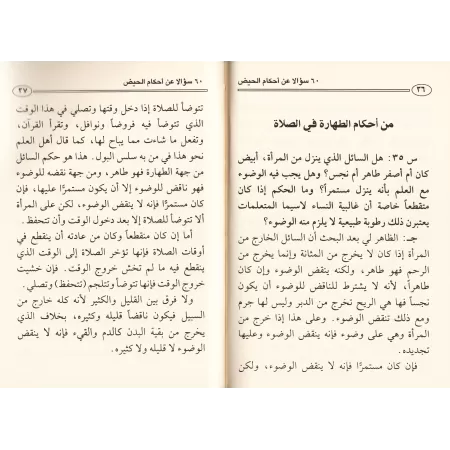 ٦٠ سؤالا عن أحكام الحيض
٣٦
من أحكام الطهارة في الصلاة
س ٣٥: هل السائل الذي ينزل من المرأة، أبيض
كان أم أصفر طاهر أم نجس؟ وهل يجب فيه الوضوء
مع العلم بأنه ينزل مستمراً؟ وما الحكم إذا كان
متقطعاً خاصة أن غالبية النساء لاسيما المتعلمات
يعتبرن ذلك رطوبة طبيعية لا يلزم منه الوضوء؟
جـ: الظاهر لي بعد البحث أن السائل الخارج من
المرأة إذا كان لا يخرج من المثانة وإنما يخرج من
الرحم فهو طاهر، ولكنه ينقض الوضوء وإن كان
طاهراً، لأنه لا يشترط للناقض للوضوء أن يكون
نجساً فها هي الريح تخرج من الدبر وليس لها جرم
ومع ذلك تنقض الوضوء. وعلى هذا إذا خرج من
المرأة وهي على وضوء فإنه ينقض الوضوء وعليها
تجديده.
فإن كان مستمراً فإنه لا ينقض الوضوء، ولكن
٦٠ سؤالا عن أحكام الحيض
٣٧
تتوضأ للصلاة إذا دخل وقتها وتصلي في هذا الوقت
الذي تتوضأ فيه فروضاً ونوافل، وتقرأ القرآن،
وتفعل ما شاءت مما يباح لها، كما قال أهل العلم
نحو هذا في من به سلس البول. هذا هو حكم السائل
من جهة الطهارة فهو طاهر، ومن جهة نقضه للوضوء
فهو ناقض للوضوء إلا أن يكون مستمرًا عليها، فإن
كان مستمرًا فإنه لا ينقض الوضوء، لكن على المرأة
ألا تتوضأ للصلاة إلا بعد دخول الوقت وأن تتحفظ.
أما إن كان منقطعاً وكان من عادته أن ينقطع في
أوقات الصلاة فإنها تؤخر الصلاة إلى الوقت الذي
ينقطع فيه ما لم تخش خروج الوقت. فإن خشيت
خروج الوقت فإنها تتوضأ وتتلجم (تتحفظ) وتصلي.
ولا فرق بين القليل والكثير لأنه كله خارج من
السبيل فيكون ناقضاً قليله وكثيره، بخلاف الذي
يخرج من بقية البدن كالدم والقيء فإنه لا ينقض
الوضوء لا قليله ولا كثيره.